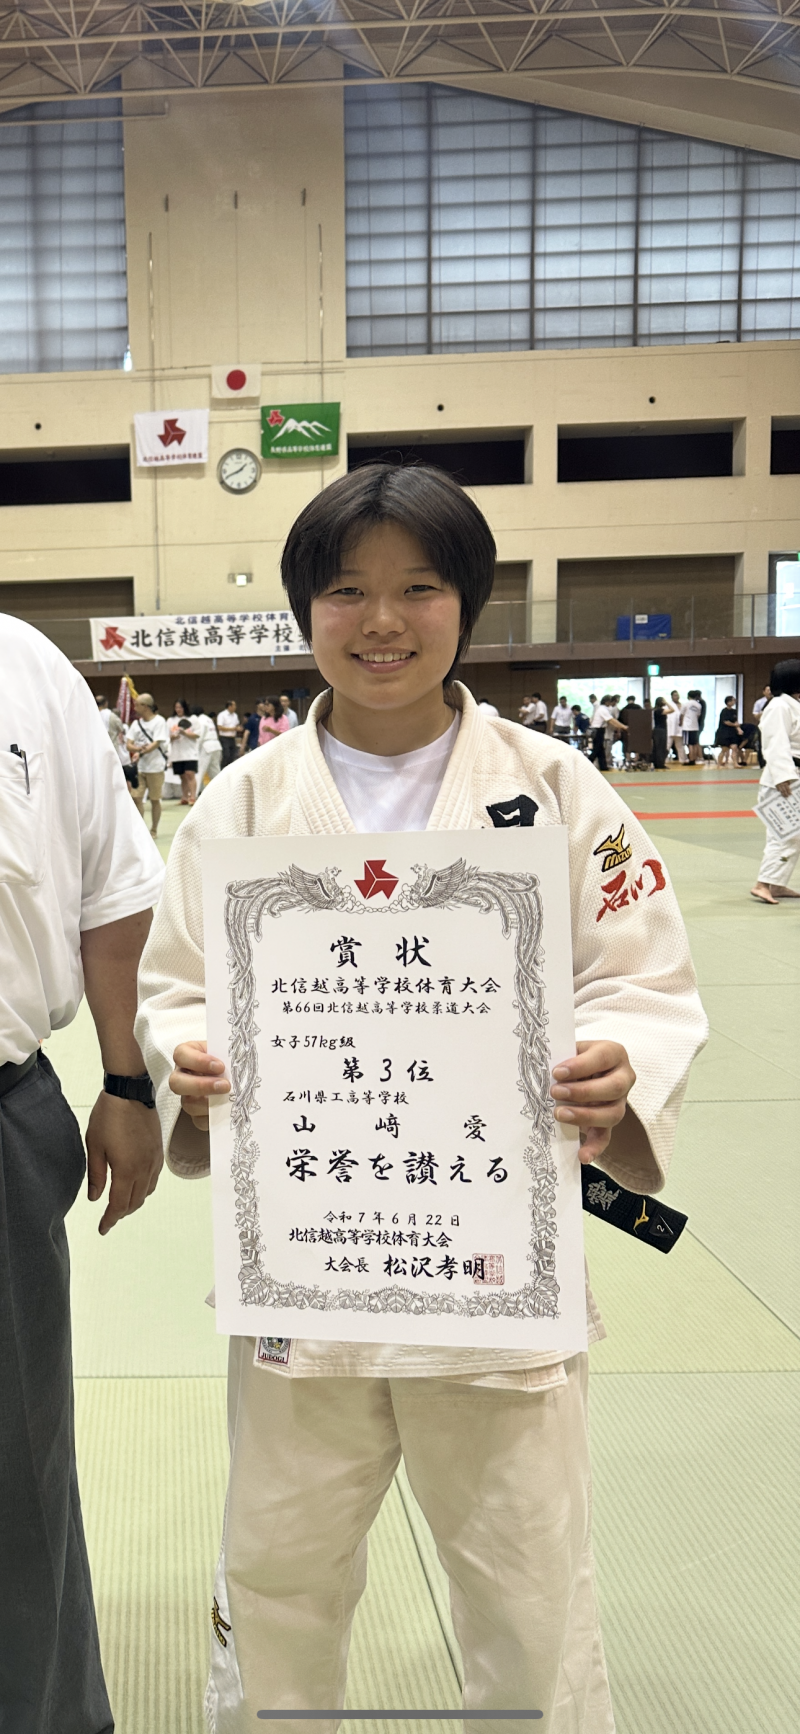 北信越高等学校体育
北信越高等学校
主催
MIZUNO
石川
賞状
北信越高等学校体育大会
第66回北信越高等学校柔道大会
女子57kg級
第3位
石川県工高等学校
山﨑 愛
栄誉を讃える
令和7年6月22日
北信越高等学校体育大会
大会長 松沢孝明
2
JUDOGI